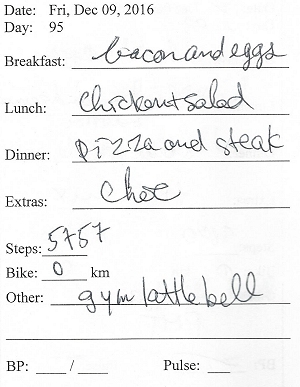 Date: Fri, Dec 09, 2016
Day: 95
Breakfast: bacon and eggs
Lunch: Chicken + salad
Dinner: Pizza and steak
Extras: Choc
Steps: 5757
Bike: 0 km
Other: gym kattlebell
BP: ___ / ___ Pulse: ___